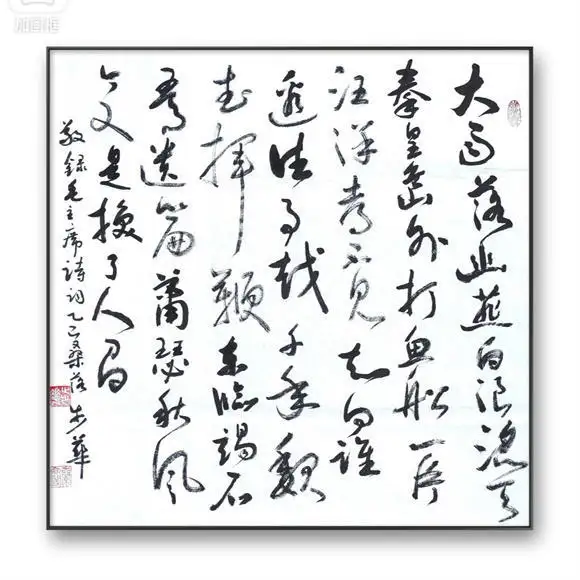 加画框
大雨落幽燕白浪滔天
秦皇岛外打鱼船一片
汪洋都不见知向谁
边往事越千年魏
武揮鞭东临碣石
有遗篇蕭瑟秋风
今又是换了人间
敬録毛主席詩词乙巳桑落 華